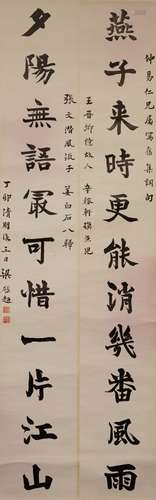 仲易仁兄屬寫舊集詞句
燕子来時更能消幾番風雨
王晉卿憶故人 辛稼軒摸魚兒
張文潛風流子 姜白石八歸
夕陽無語冣可惜一片江山
丁卯清明後三日 梁啟超